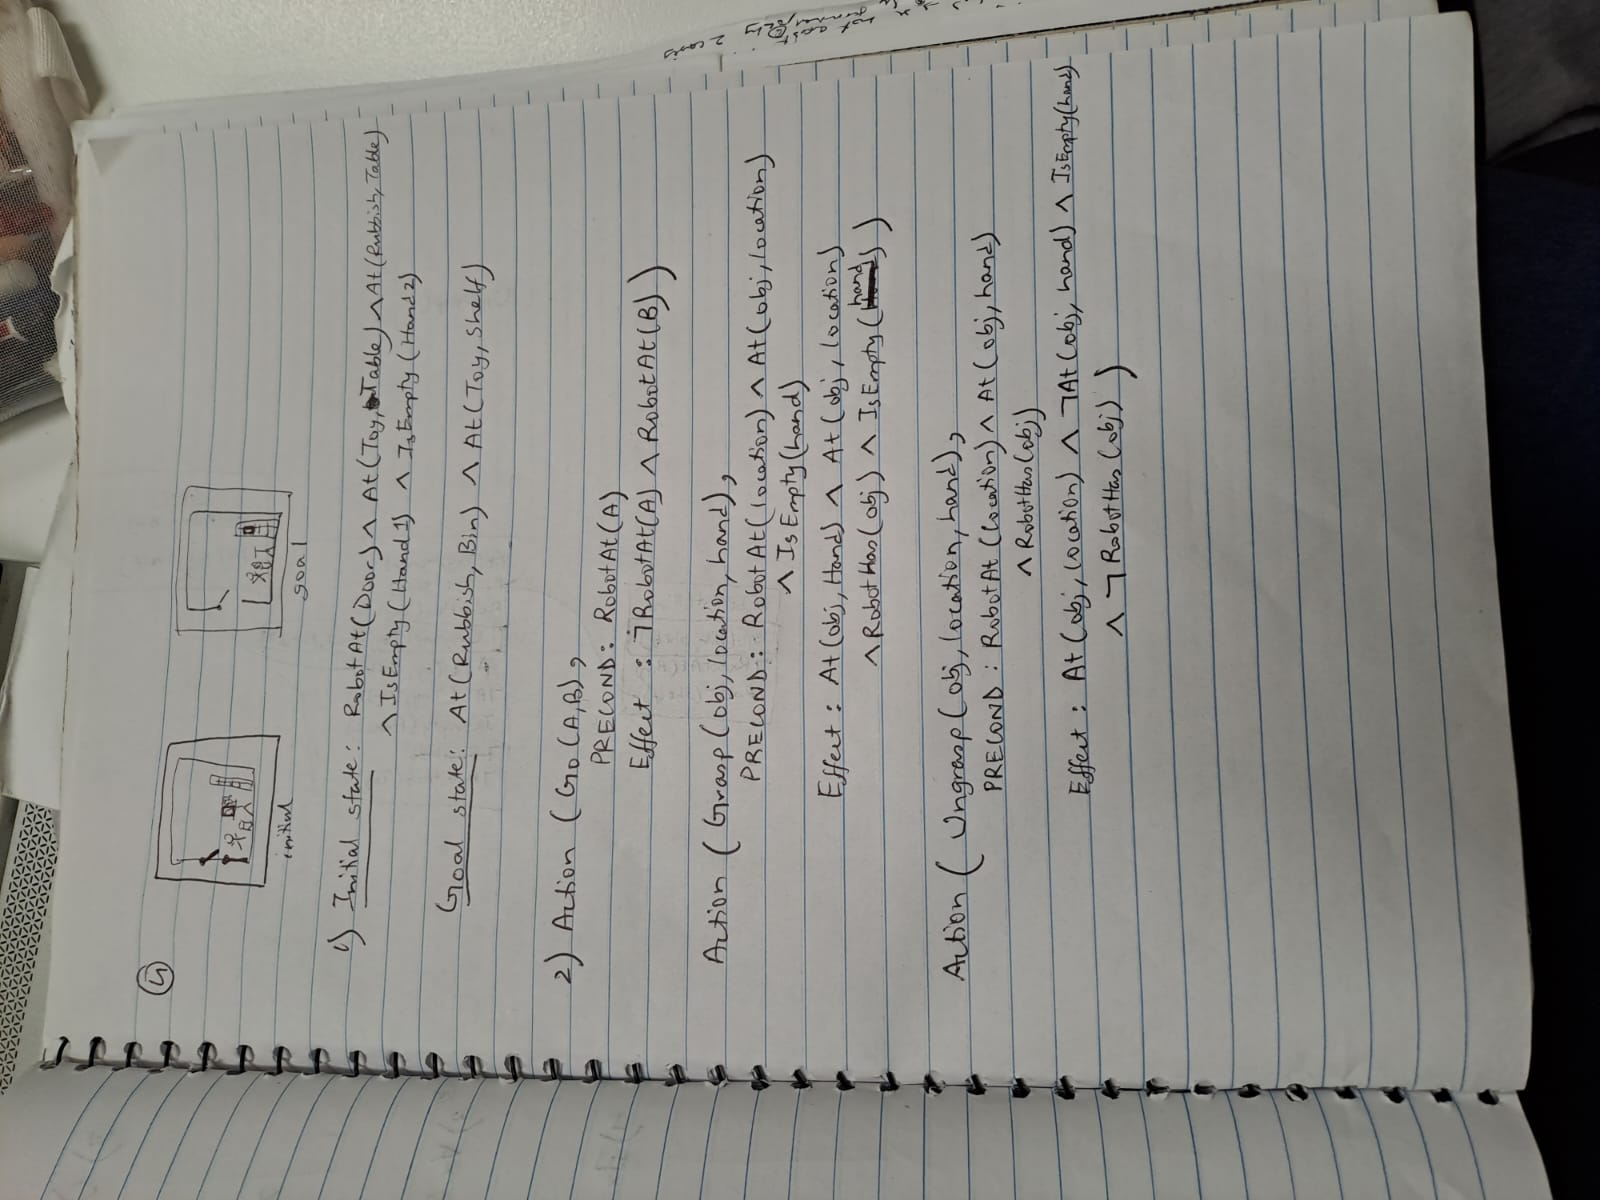 ④
initial
goal
1) Initial state: RobotAt(Door) ∧ At(Toy, Table) ∧ At(Rubbish, Table)
∧ IsEmpty(Hand1) ∧ IsEmpty(Hand2)
Goal state: At(Rubbish, Bin) ∧ At(Toy, Shelf)
2) Action (Go(A,B),
PRECOND: RobotAt(A)
Effect : ¬RobotAt(A) ∧ RobotAt(B))
Action (Grasp(obj, location, hand),
PRECOND: RobotAt(location) ∧ At(obj, location)
∧ IsEmpty(hand)
Effect : At(obj, Hand) ∧ At(obj, location)
∧ RobotHas(obj) ∧ IsEmpty(hand))
Action (Ungrasp(obj, location, hand),
PRECOND : RobotAt(location) ∧ At(obj, hand)
∧ RobotHas(obj)
Effect : At(obj, location) ∧ ¬At(obj, hand) ∧ IsEmpty(hand)
∧ ¬RobotHas(obj))